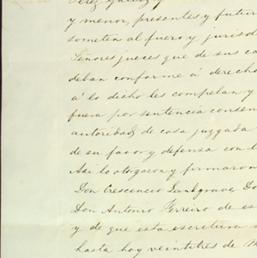 y menor, presentes y futur
someten al fuero y jurisd
Señores jueces que de sus ca
deban conforme á derecho
á lo dicho les compelan y
fuera por sentencia consen
autoridad de cosa juzgada
de su favor y defensa con l
Asi lo otorgaron y firmaron
Don Crescencio
Don Antonio Ferreiro de es
y de que esta escritura
hasta hoy veintitres de M